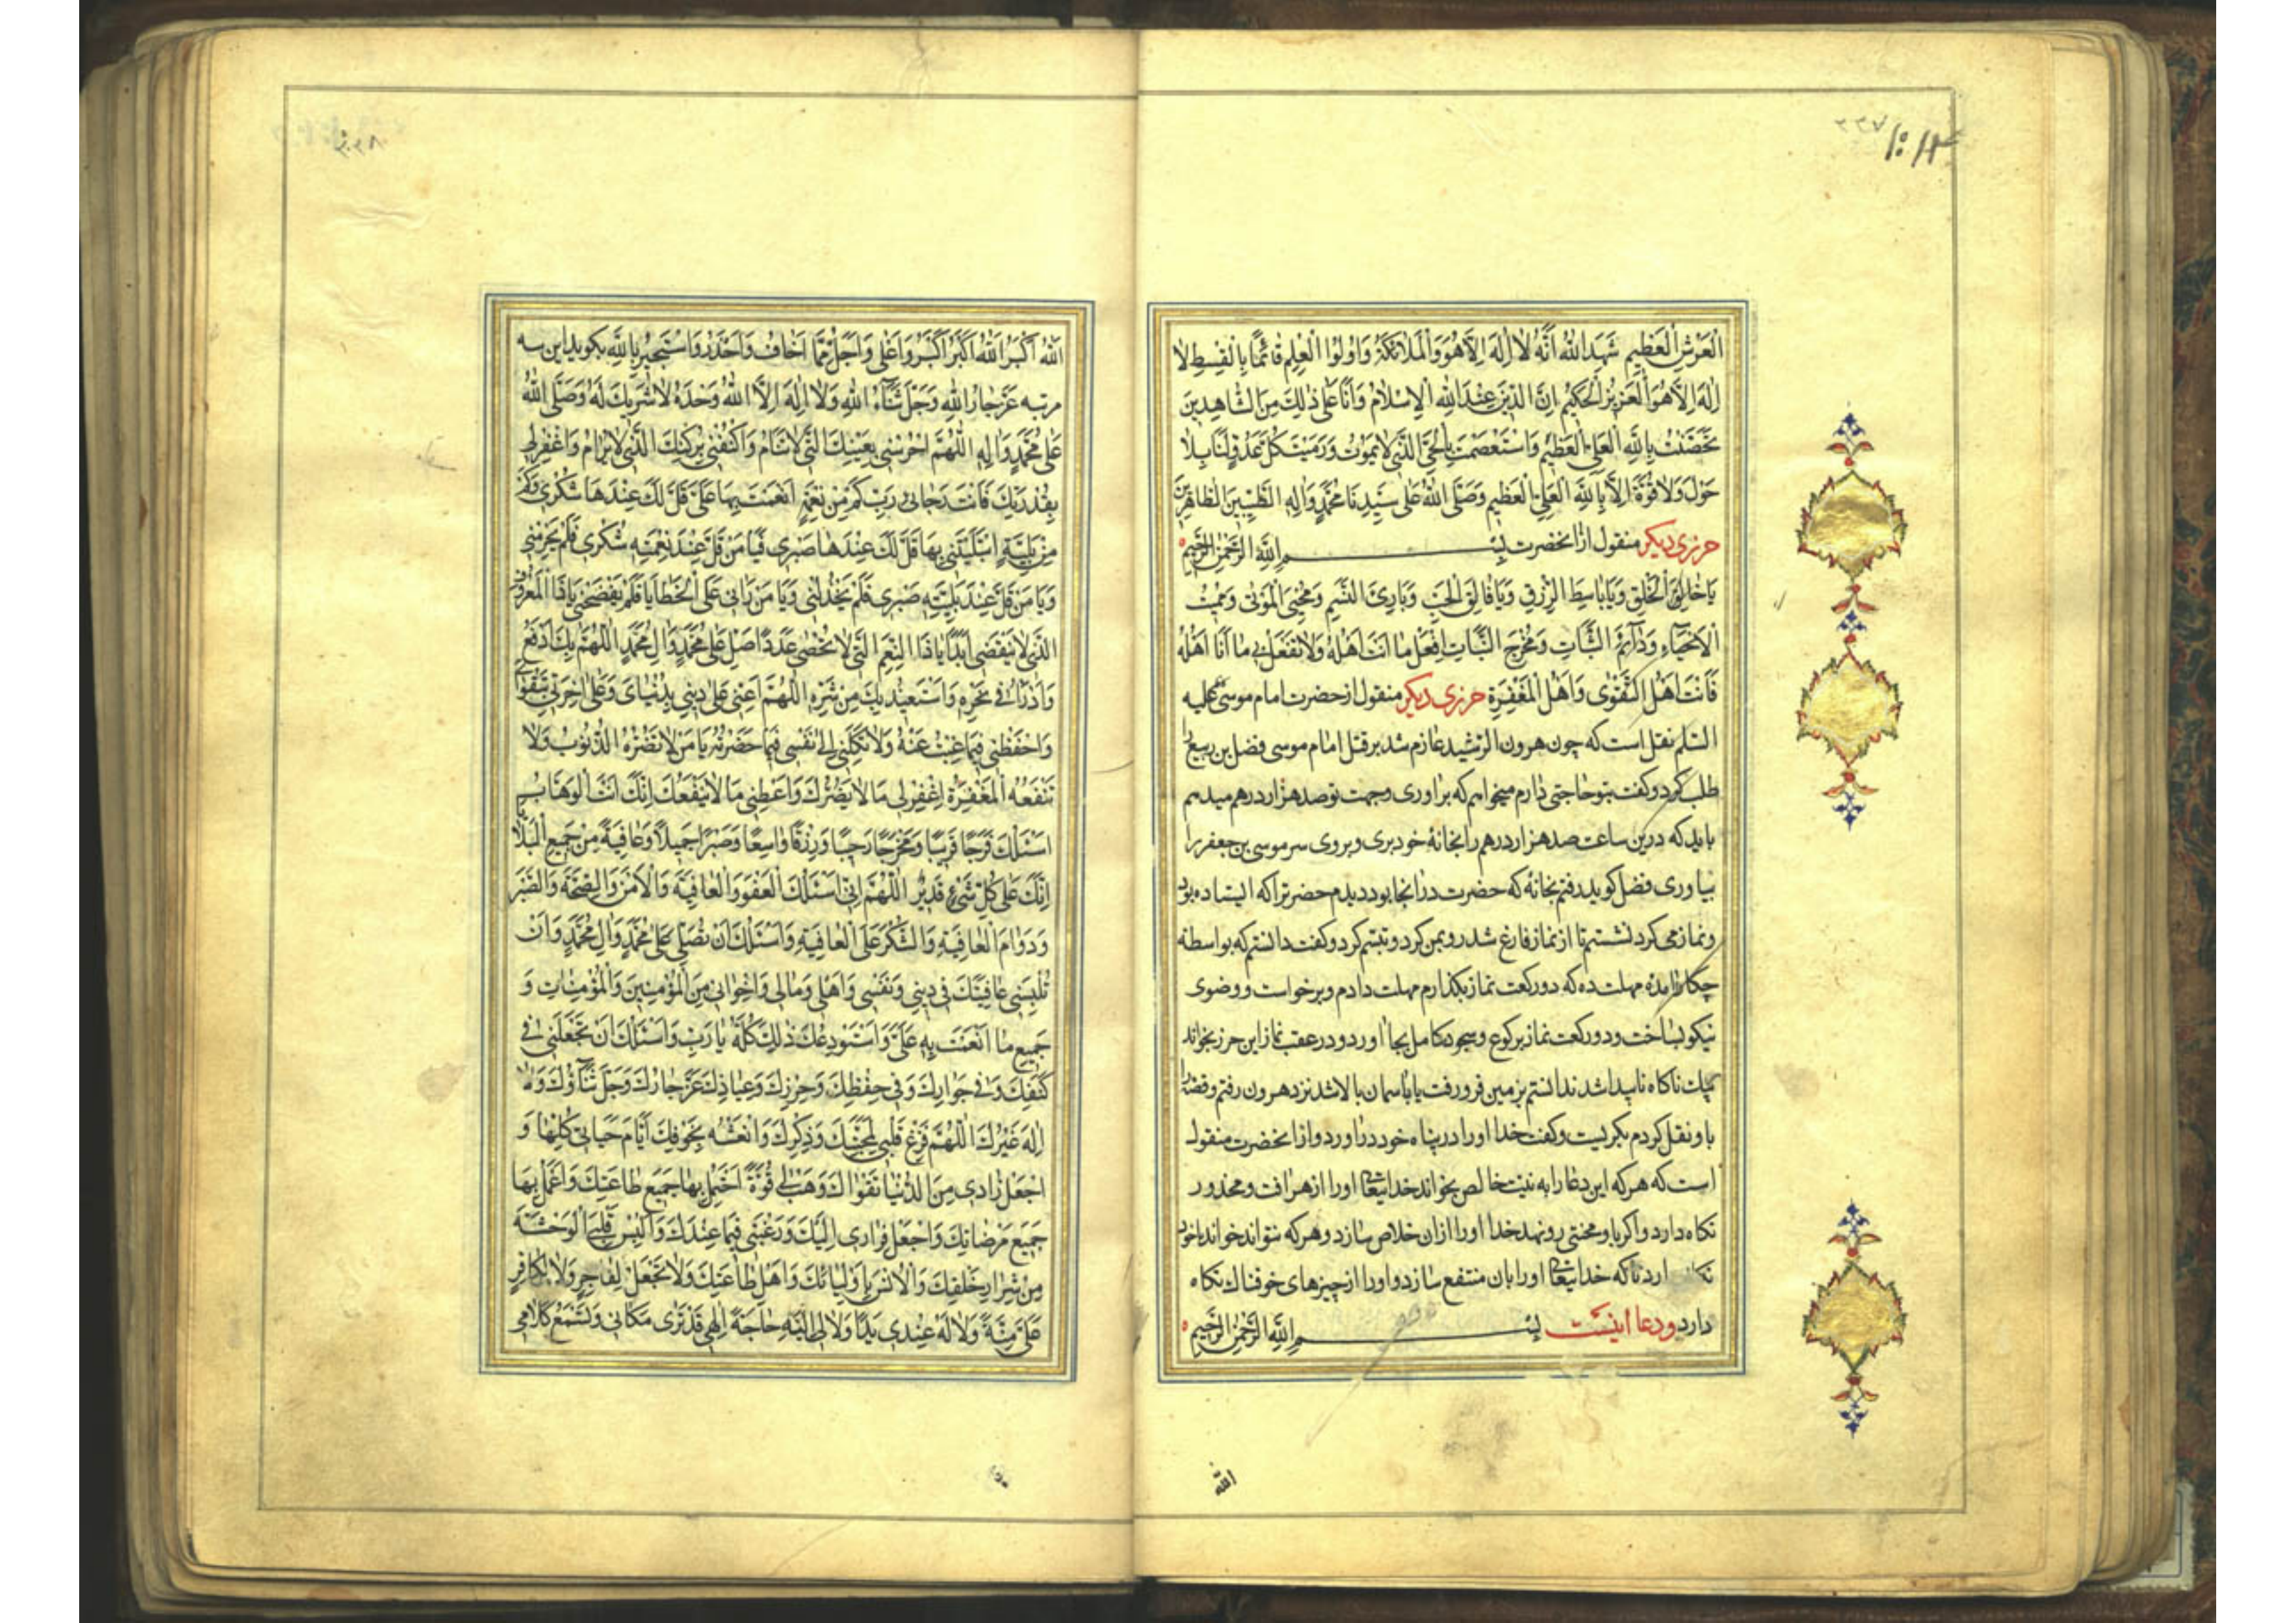 ۲۳۷
۱۰۱۴
العَرْشِ الْعَظِیمِ شَهِدَ اللّٰهُ اَنَّهُ لَا اِلٰهَ اِلَّا هُوَ وَالْمَلَائِكَةُ وَاُولُوا الْعِلْمِ قَائِمًا بِالْقِسْطِ لَا
اِلٰهَ اِلَّا هُوَ الْعَزِیزُ الْحَكِیمُ اِنَّ الدِّینَ عِنْدَ اللّٰهِ الْاِسْلَامُ وَاَنَا عَلٰی ذٰلِكَ مِنَ الشَّاهِدِینَ
تَحَصَّنْتُ بِاللّٰهِ الْعَلِیِّ الْعَظِیمِ وَاسْتَعْصَمْتُ بِالْحَیِّ الَّذِی لَا یَمُوتُ وَرَمَیْتُ كُلَّ عَدُوٍّ لَنَا بِلَا
حَوْلَ وَلَا قُوَّةَ اِلَّا بِاللّٰهِ الْعَلِیِّ الْعَظِیمِ وَصَلَّی اللّٰهُ عَلٰی سَیِّدِنَا مُحَمَّدٍ وَاٰلِهِ الطَّیِّبِینَ الطَّاهِرِینَ
حرزی دیکر منقول از انحضرت بِسْمِ اللّٰهِ الرَّحْمٰنِ الرَّحِیمِ
یَا خَالِقَ الْخَلْقِ وَیَا بَاسِطَ الرِّزْقِ وَیَا فَالِقَ الْحَبِّ وَبَارِئَ النَّسَمِ وَمُحْیِیَ الْمَوْتٰی وَمُمِیتَ
الْاَحْیَاءِ وَدَائِمَ الثَّبَاتِ وَمُخْرِجَ النَّبَاتِ اِفْعَلْ بِی مَا اَنْتَ اَهْلُهُ وَلَا تَفْعَلْ بِی مَا اَنَا اَهْلُهُ
فَاَنْتَ اَهْلُ التَّقْوٰی وَاَهْلُ الْمَغْفِرَةِ حرزی دیکر منقول از حضرت امام موسی علیه
السّلم نقل است که چون هرون الرّشید عازم شد بر قتل امام موسی فضل بن ربیع را
طلب کرد و کفت بتو حاجتی دارم میخواهم که براوری و جهت تو صد هزار درهم میدهم
باید که درین ساعت صد هزار درهم را بخانهٔ خود بری و بروی سر موسی بن جعفر را
بیاوری فضل کوید رفتم بخانه که حضرت در انجا بود دیدم حضرتراکه ایستاده بود
و نماز می کرد نشستم تا از نماز فارغ شد رو بمن کرد و تبسم کرد و کفت دانستم که بواسطه
چکار آمدهٔ مهلت ده که دو رکعت نماز بکذارم مهلت دادم و برخواست و وضوی
نیکو بساخت و دو رکعت نماز برکوع و سجود کامل بجا اورد و در عقب نماز این حرز بخواند
ناکاه ناپیدا شد ندانستم بزمین فرو رفت یا باسمان بالا شد نزد هرون رفتم و قصه را
باو نقل کردم بکریست و کفت خدا او را در پناه خود در اورد و از انحضرت منقول
است که هر که این دعا را به نیت خالص بخواند خدایتعالی او را از هر افت و محذور
نکاه دارد و اکر باو محنتی رو نهد خدا او را ازان خلاص سازد و هر که نتواند خواند با خود
نکاه دارد تا که خدایتعالی او را بان منتفع سازد و او را از چیزهای خوفناك نکاه
دارد ودعا اینست بِسْمِ اللّٰهِ الرَّحْمٰنِ الرَّحِیمِ
الله
۲۳۸
اللّٰهُ اَكْبَرُ اللّٰهُ اَكْبَرُ اَكْبَرُ وَاَعْلٰی وَاَجَلُّ مِمَّا اَخَافُ وَاَحْذَرُ وَاَسْتَجِیرُ بِاللّٰهِ بکوید این سه
مرتبه عَزَّ جَارُ اللّٰهِ وَجَلَّ ثَنَاءُ اللّٰهِ وَلَا اِلٰهَ اِلَّا اللّٰهُ وَحْدَهُ لَا شَرِیكَ لَهُ وَصَلَّی اللّٰهُ
عَلٰی مُحَمَّدٍ وَاٰلِهِ اَللّٰهُمَّ احْرُسْنِی بِعَیْنِكَ الَّتِی لَا تَنَامُ وَاكْنُفْنِی بِرُكْنِكَ الَّذِی لَا یُرَامُ وَاغْفِرْ لِی
بِقُدْرَتِكَ فَاَنْتَ رَجَائِی رَبِّ كَمْ مِنْ نِعْمَةٍ اَنْعَمْتَ بِهَا عَلَیَّ قَلَّ لَكَ عِنْدَهَا شُكْرِی وَكَمْ
مِنْ بَلِیَّةٍ ابْتَلَیْتَنِی بِهَا قَلَّ لَكَ عِنْدَهَا صَبْرِی فَیَا مَنْ قَلَّ عِنْدَ نِعْمَتِهِ شُكْرِی فَلَمْ یَحْرِمْنِی
وَیَا مَنْ قَلَّ عِنْدَ بَلِیَّتِهِ صَبْرِی فَلَمْ یَخْذُلْنِی وَیَا مَنْ رَاٰنِی عَلَی الْخَطَایَا فَلَمْ یَفْضَحْنِی یَا ذَا الْمَعْرُوفِ
الَّذِی لَا یَنْقَضِی اَبَدًا یَا ذَا النِّعَمِ الَّتِی لَا تُحْصٰی عَدَدًا صَلِّ عَلٰی مُحَمَّدٍ وَاٰلِ مُحَمَّدٍ اَللّٰهُمَّ بِكَ اَدْفَعُ
وَاَدْرَأُ فِی نَحْرِهِ وَاَسْتَعِیذُ بِكَ مِنْ شَرِّهِ اَللّٰهُمَّ اَعِنِّی عَلٰی دِینِی بِدُنْیَایَ وَعَلٰی اٰخِرَتِی بِتَقْوَایَ
وَاحْفَظْنِی فِیمَا غِبْتُ عَنْهُ وَلَا تَكِلْنِی اِلٰی نَفْسِی فِیمَا حَضَرْتُهُ یَا مَنْ لَا تَضُرُّهُ الذُّنُوبُ وَلَا
تَنْفَعُهُ الْمَغْفِرَةُ اِغْفِرْ لِی مَا لَا یَضُرُّكَ وَاَعْطِنِی مَا لَا یَنْفَعُكَ اِنَّكَ اَنْتَ الْوَهَّابُ
اَسْئَلُكَ فَرَجًا قَرِیبًا وَمَخْرَجًا رَحِیبًا وَرِزْقًا وَاسِعًا وَصَبْرًا جَمِیلًا وَعَافِیَةً مِنْ جَمِیعِ الْبَلَاءِ
اِنَّكَ عَلٰی كُلِّ شَیْءٍ قَدِیرٌ اَللّٰهُمَّ اِنِّی اَسْئَلُكَ الْعَفْوَ وَالْعَافِیَةَ وَالْاَمْنَ وَالصِّحَّةَ وَالصَّبْرَ
وَدَوَامَ الْعَافِیَةِ وَالشُّكْرَ عَلَی الْعَافِیَةِ وَاَسْئَلُكَ اَنْ تُصَلِّیَ عَلٰی مُحَمَّدٍ وَاٰلِ مُحَمَّدٍ وَاَنْ
تُلْبِسَنِی عَافِیَتَكَ فِی دِینِی وَنَفْسِی وَاَهْلِی وَمَالِی وَاِخْوَانِی مِنَ الْمُؤْمِنِینَ وَالْمُؤْمِنَاتِ وَ
جَمِیعِ مَا اَنْعَمْتَ بِهِ عَلَیَّ وَاَسْتَوْدِعُكَ ذٰلِكَ كُلَّهُ یَا رَبِّ وَاَسْئَلُكَ اَنْ تَجْعَلَنِی فِی
كَنَفِكَ وَفِی جِوَارِكَ وَفِی حِفْظِكَ وَحِرْزِكَ وَعِیَاذِكَ عَزَّ جَارُكَ وَجَلَّ ثَنَاؤُكَ وَلَا
اِلٰهَ غَیْرُكَ اَللّٰهُمَّ فَرِّغْ قَلْبِی لِمَحَبَّتِكَ وَذِكْرِكَ وَانْعَشْهُ بِخَوْفِكَ اَیَّامَ حَیَاتِی كُلِّهَا وَ
اجْعَلْ زَادِی مِنَ الدُّنْیَا تَقْوَاكَ وَهَبْ لِی قُوَّةً اَحْتَمِلُ بِهَا جَمِیعَ طَاعَتِكَ وَاَعْمَلُ بِهَا
جَمِیعَ مَرْضَاتِكَ وَاجْعَلْ فِرَارِی اِلَیْكَ وَرَغْبَتِی فِیمَا عِنْدَكَ وَاَلْبِسْ قَلْبِیَ الْوَحْشَةَ
مِنْ شِرَارِ خَلْقِكَ وَالْاُنْسَ بِاَوْلِیَائِكَ وَاَهْلِ طَاعَتِكَ وَلَا تَجْعَلْ لِفَاجِرٍ وَلَا لِكَافِرٍ
عَلَیَّ مِنَّةً وَلَا لَهُ عِنْدِی یَدًا وَلَا لِی اِلَیْهِ حَاجَةً اِلٰهِی قَدْ تَرٰی مَكَانِی وَتَسْمَعُ كَلَامِی